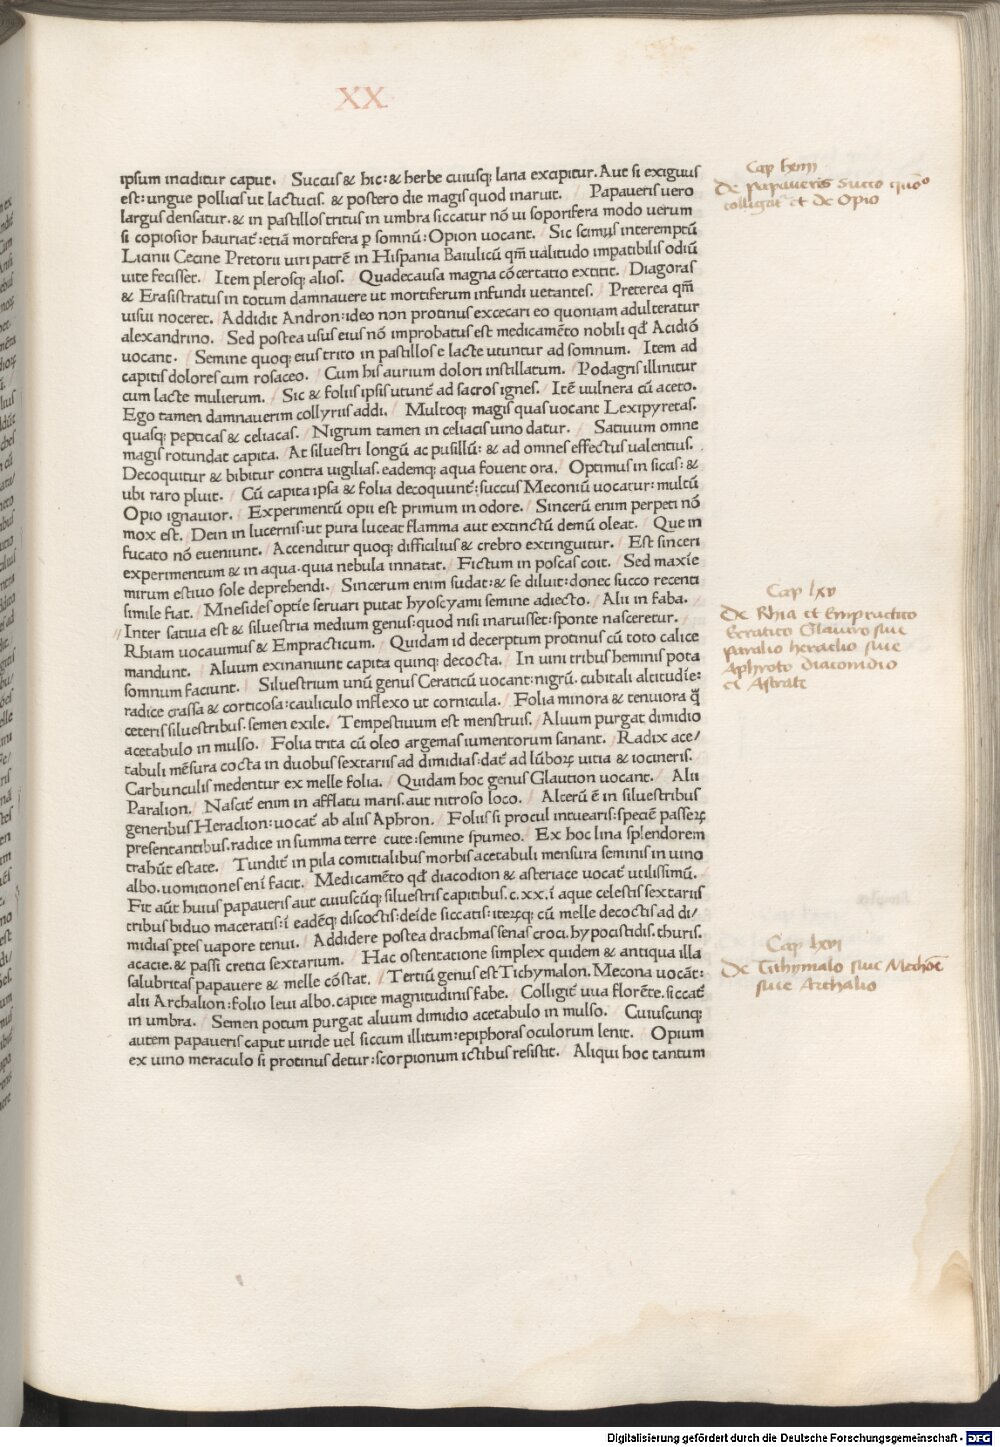 XX
ipsum inciditur caput. Succus & hic: & herbe cuiusq; lana excipitur. Aut si exiguus
est: ungue pollicis ut lactucis. & postero die magis quod inaruit. Papaueris uero
largus densatur. & in pastillos tritus in umbra siccatur nō ui soporifera modo uerum
si copiosior hauriat᷑: etiā mortifera ꝑ somnū: Opion uocant. Sic scimus interemptū
Licinii Cecine Pretorii uiri patrē in Hispania Bauilicū qm̄ ualitudo impatibilis odiū
uite fecisset. Item plerosq; alios. Quadecausa magna cōcertatio extitit. Diagoras
& Erasistratus in totum damnauere ut mortiferum infundi uetantes. Preterea qm̄
uisui noceret. Addidit Andron: ideo non protinus excecari eo quoniam adulteratur
alexandrino. Sed postea usus eius nō improbatus est medicamēto nobili qd̄ Acidiō
uocant. Semine quoq; eius trito in pastillos e lacte utuntur ad somnum. Item ad
capitis dolores cum rosaceo. Cum his aurium dolori instillatum. Podagris illinitur
cum lacte mulierum. Sic & foliis ipsis utunt᷑ ad sacros ignes. Itē uulnera cū aceto.
Ego tamen damnauerim collyriis addi. Multoq; magis quas uocant Lexipyretas.
quasq; pepticas & celiacas. Nigrum tamen in celiacis uino datur. Satiuum omne
magis rotundat capita. At siluestri longū ac pusillū: & ad omnes effectus ualentius.
Decoquitur & bibitur contra uigilias. eademq; aqua fouent ora. Optimus in siccis: &
ubi raro pluit. Cū capita ipsa & folia decoquunt᷑: succus Meconiū uocatur: multū
Opio ignauior. Experimentū opii est primum in odore. Sincerū enim perpeti nō
mox est. Dein in lucernis: ut pura luceat flamma aut extinctū demū oleat. Que in
fucato nō eueniunt. Accenditur quoq; difficilius & crebro extinguitur. Est sinceri
experimentum & in aqua. quia nebula innatat. Fictum in poscas coit. Sed maxīe
mirum estiuo sole deprehendi. Sincerum enim sudat: & se diluit: donec succo recenti
simile fiat. Mnesides optīe seruari putat hyoscyami semine adiecto. Alii in faba.
Inter satiua est & siluestria medium genus: quod nisi inaruisset: sponte nasceretur.
Rhiam uocauimus & Empracticum. Quidam id decerptum protinus cū toto calice
mandunt. Aluum exinaniunt capita quinq; decocta. In uini tribus heminis pota
somnum faciunt. Siluestrium unū genus Ceraticū uocant: nigrū. cubitali altitudīe:
radice crassa & corticosa: cauliculo inflexo ut cornicula. Folia minora & tenuiora q̄
ceteris siluestribus. semen exile. Tempestiuum est menstruis. Aluum purgat dimidio
acetabulo in mulso. Folia trita cū oleo argemas iumentorum sanant. Radix ace/
tabuli mēsura cocta in duobus sextariis ad dimidias: dat᷑ ad lūboꝝ uitia & iocineris.
Carbunculis medentur ex melle folia. Quidam hoc genus Glaution uocant. Alii
Paralion. Nascit᷑ enim in afflatu maris. aut nitroso loco. Alterū ē in siluestribus
generibus Heradion: uocat᷑ ab aliis Aphron. Foliis si procul intuearis: speciē passeꝝ
presentantibus. radice in summa terre cute: semine spumeo. Ex hoc lina splendorem
trahūt estate. Tundit᷑ in pila comitialibus morbis acetabuli mensura seminis in uino
albo. uomitiones enī facit. Medicamēto qd̄ diacodion & asteriace uocat᷑ utilissimū.
Fit aūt huius papaueris aut cuiuscūq; siluestris capitibus. c. xx. ī aque celestis sextariis
tribus biduo maceratis: ī eadēq; discoctis: deīde siccatis: iteꝝq; cū melle decoctis ad di/
midias ꝑtes uapore tenui. Addidere postea drachmas senas croci. hypocistidis. thuris.
acacie. & passi cretici sextarium. Hac ostentatione simplex quidem & antiqua illa
salubritas papauere & melle cōstat. Tertiū genus est Tithymalon. Mecona uocāt:
alii Archalion: folio leui albo. capite magnitudinis fabe. Colligit᷑ uua florēte. siccat᷑
in umbra. Semen potum purgat aluum dimidio acetabulo in mulso. Cuiuscunq;
autem papaueris caput uiride uel siccum illitum: epiphoras oculorum lenit. Opium
ex uino meraculo si protinus detur: scorpionum ictibus resistit. Aliqui hoc tantum
Cap lxiiii
De papaueris Succo quōo
colligat᷑ et de Opio
Cap lxv
De Rhia et Empractico
Ceratico Glauco siue
paralio heraclio siue
Aphroto diacondio
et Astrate
Cap lxvi
De Tithymalo siue Mechōe
siue Archalio
Digitalisierung gefördert durch die Deutsche Forschungsgemeinschaft - DFG